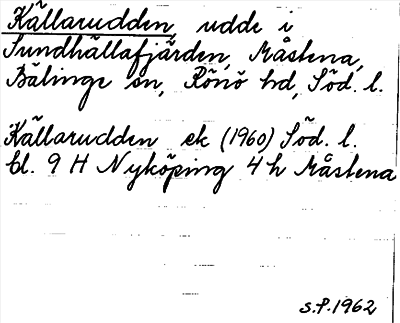 Källarudden, udde i
Sundhällafjärden, Måstena,
Bälinge sn, Rönö hd, Söd. l.
Källarudden ek (1960) Söd. l.
bl. 9 H Nyköping 4 h Måstena
S.P. 1962